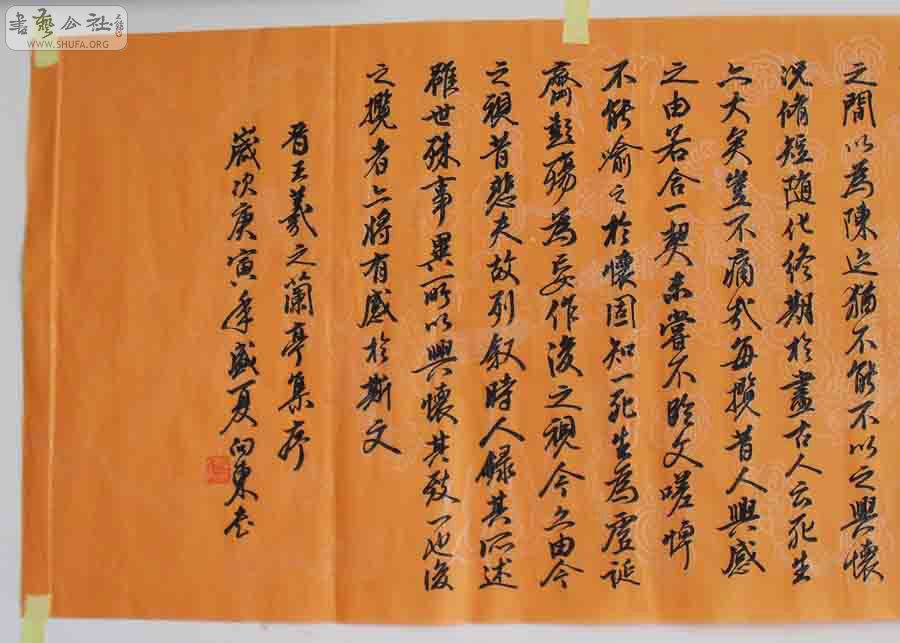 之間以為陳迹猶不能不以之興懷
況脩短随化終期於盡古人云死生
亦大矣豈不痛哉每攬昔人興感
之由若合一契未嘗不臨文嗟悼
不能喻之於懷固知一死生為虚誕
齊彭殤為妄作後之視今亦由今
之視昔悲夫故列叙時人錄其所述
雖世殊事異所以興懷其致一也後
之攬者亦將有感於斯文
晋王羲之蘭亭集序
嵗次庚寅年盛夏向東書
書藝公社
WWW.SHUFA.ORG